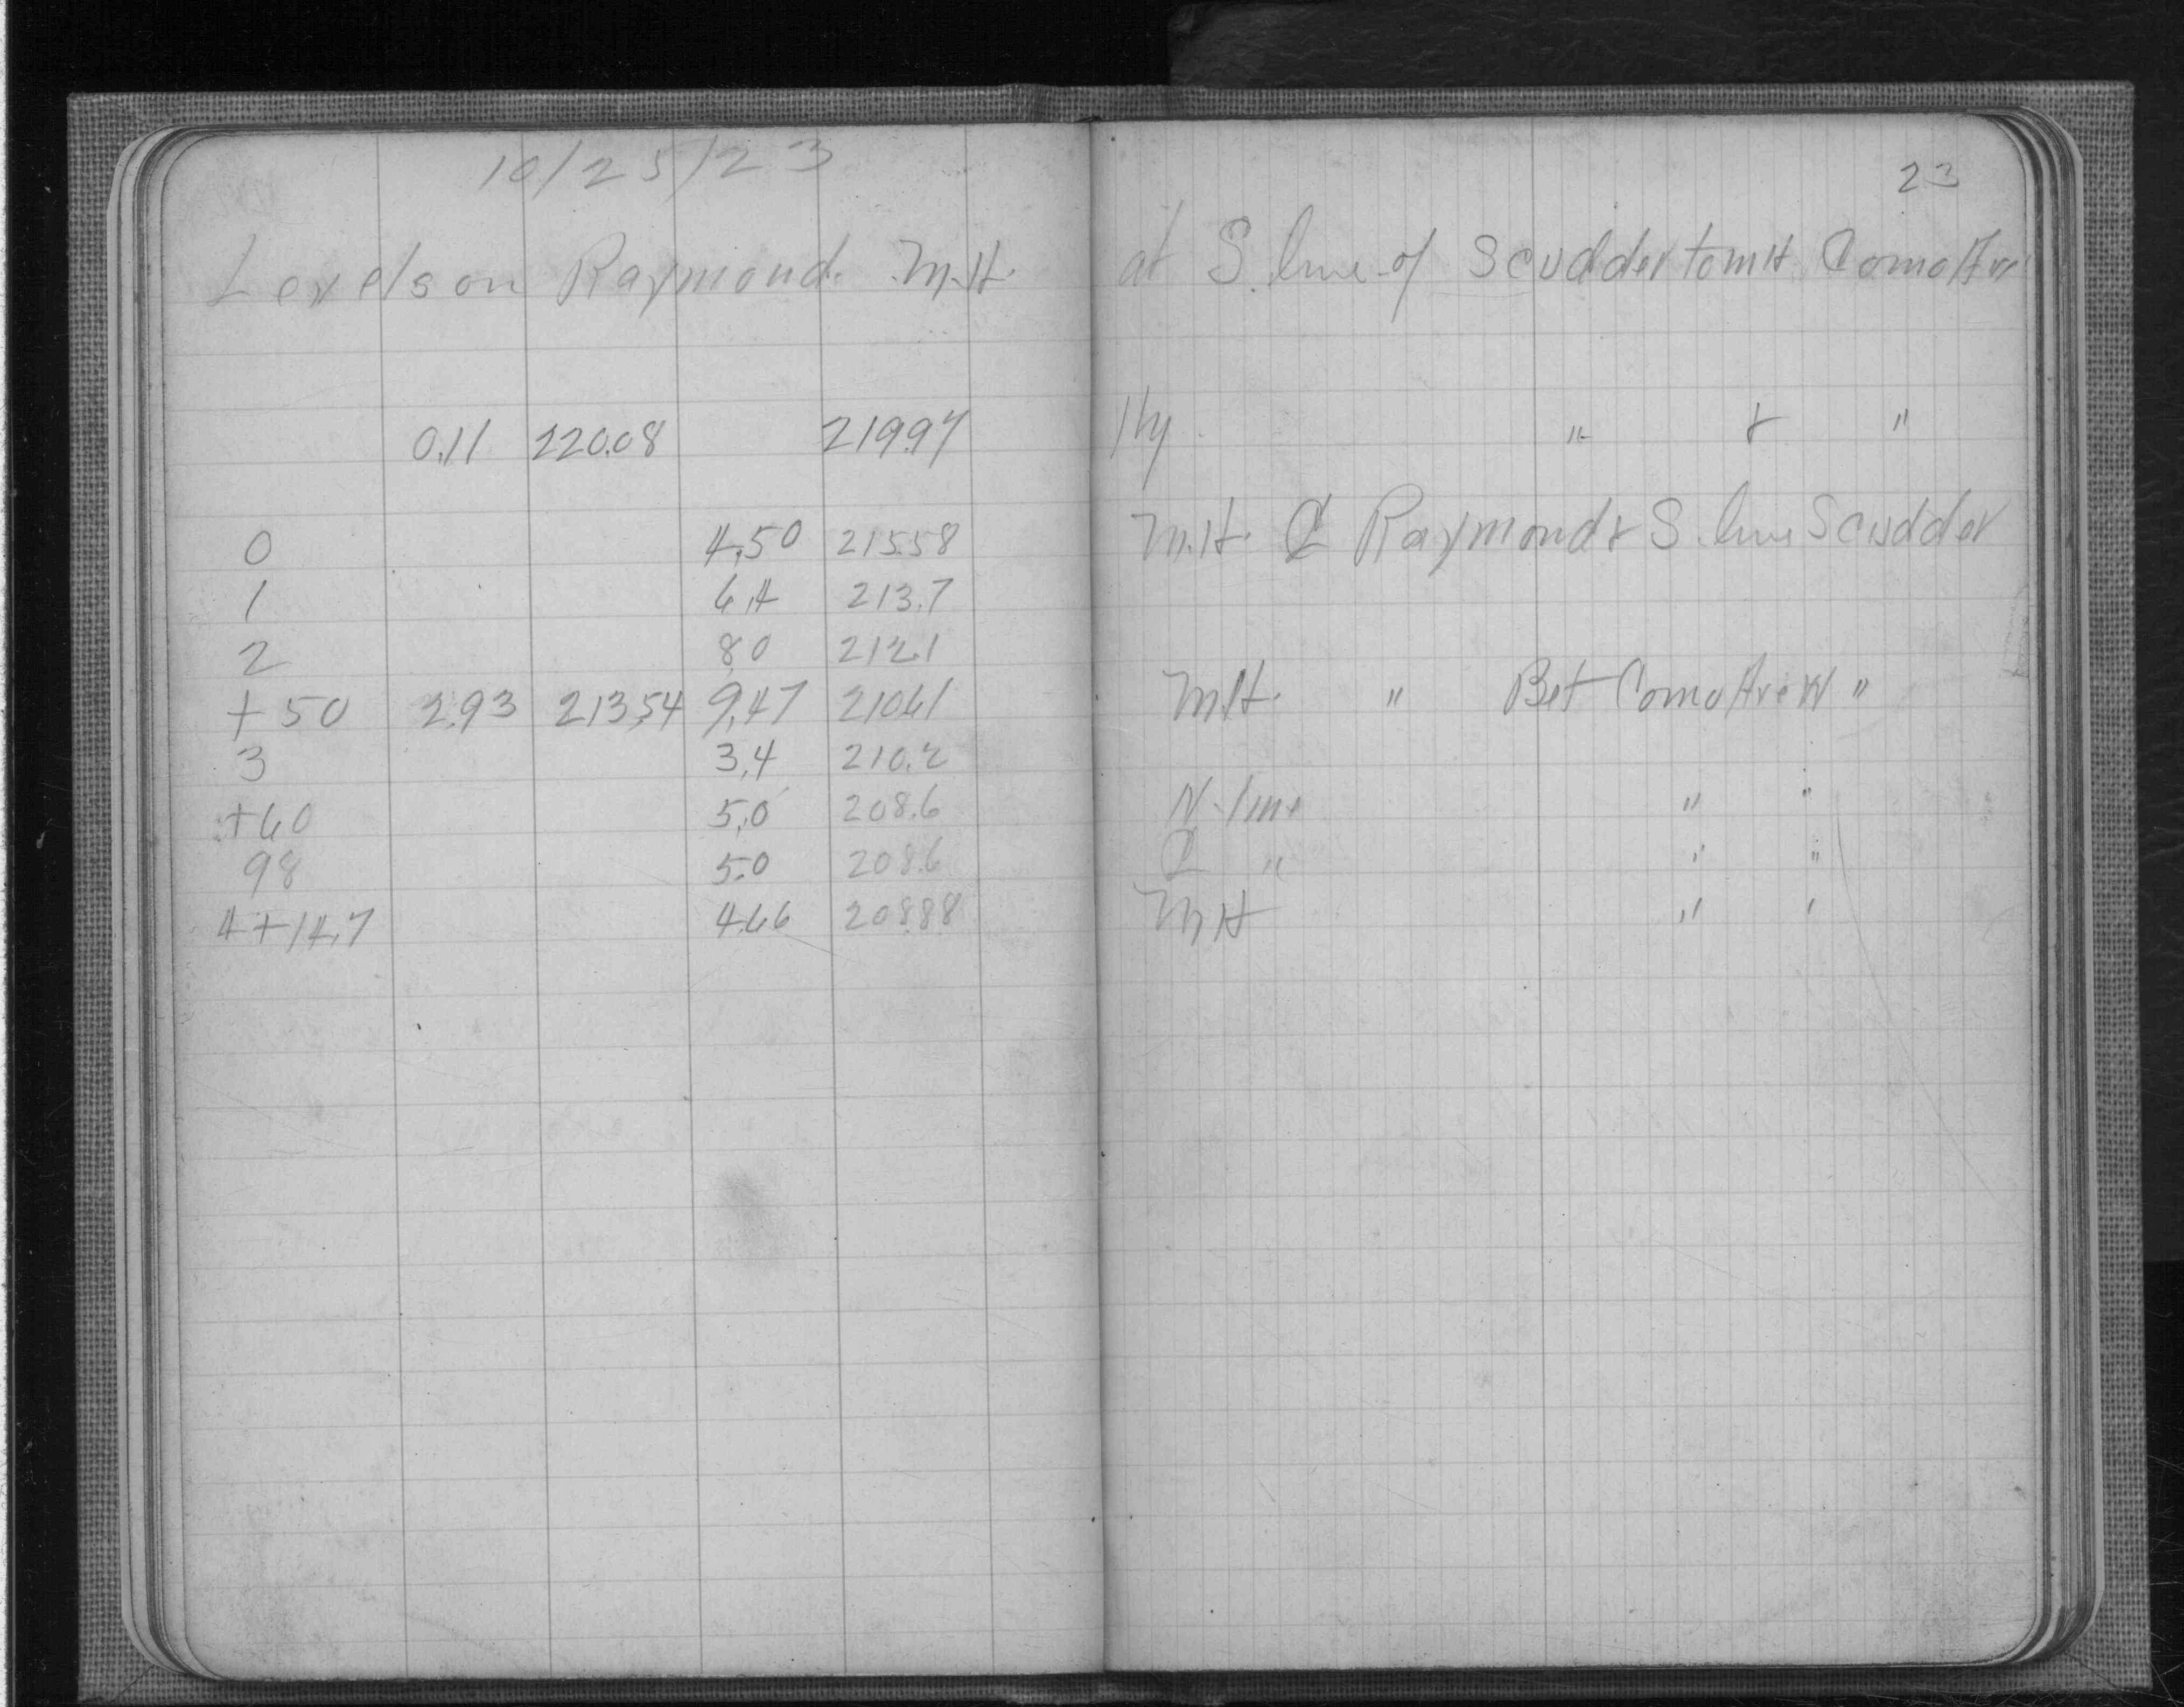 10/25/23
23
Levels on Raymond. M.H. at S. line of Scudder to M.H. Como Ave
0.11 220.08 219.97 Hy " & "
0 4.50 215.58 M.H. ℄ Raymond & S. line Scudder
1 6.4 213.7
2 8.0 212.1
+50 2.93 213.54 9.47 210.61 M.H. " Bet Como Ave W "
3 3.4 210.2
+60 5.0 208.6 N-line " "
98 5.0 208.6 ℄ " " "
4+14.7 4.66 208.88 M.H " "